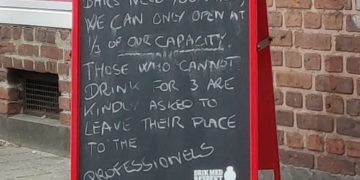 BARS NEED YOU
WE CAN ONLY OPEN AT
1/3 OF OUR CAPACITY.
THOSE WHO CANNOT
DRINK FOR 3 ARE
KINDLY ASKED TO
LEAVE THEIR PLACE
TO THE
PROFESSIONELS
DRIK MED
RESPEKT